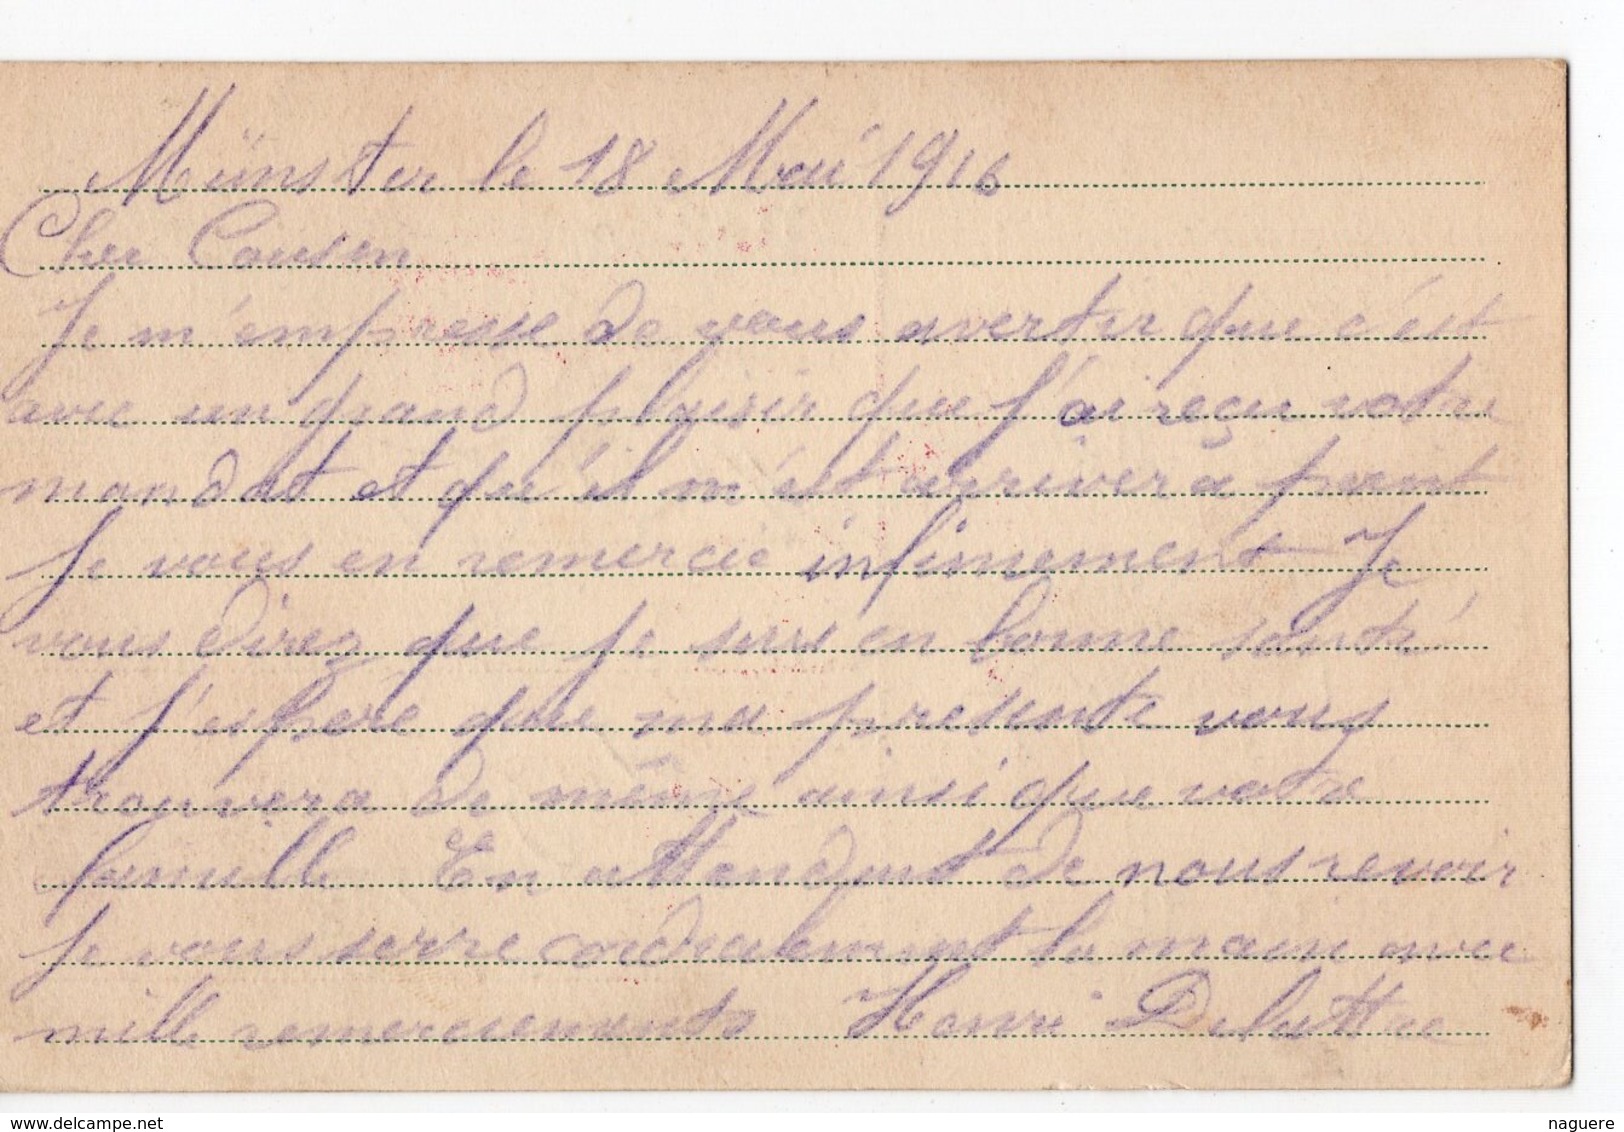 Münster le 18 Mai 1916
Cher Cousin
Je m'empresse de vous avertir que c'est
avec un grand plaisir que j'ai reçu votre
mandat et qu'il m'est arriver a point
Je vous en remercie infiniment Je
vous direz que je suis en bonne santé
et j'espère que ma presente vous
trouvera de même ainsi que votre
famille En attendant de nous revoir
Je vous serre cordialement la main avec
mille remerciements Henri Delattre
delcampe.net
naguere